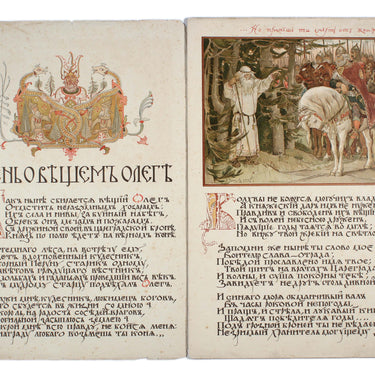 ...Но примешь ты смерть отъ кон
НЬ О ВѢЩЕМЪ ОЛЕГѢ
Какъ нынѣ сбирается вѣщій Олегъ
Отмстить неразумнымъ хозарамъ:
Ихъ села и нивы, за буйный набѣгъ,
Обрекъ онъ мечамъ и пожарамъ.
Съ дружиной своей, въ цареградской бронѣ,
Князь по полю ѣдетъ на вѣрномъ конѣ.
темнаго лѣса, на встрѣчу ему,
етъ вдохновенный кудесникъ,
орный Перуну старикъ одному,
вѣтовъ грядущаго вѣстникъ,
мольбахъ и гаданьяхъ проведшій весь вѣкъ.
мудрому старцу подъѣхалъ Олегъ.
жи мнѣ, кудесникъ, любимецъ боговъ,
сбудется въ жизни со мною
коро ль, на радость сосѣдей враговъ,
гильной засыплюсь землею
крой мнѣ всю правду, не бойся меня:
награду любого возьмешь ты коня.
Волхвы не боятся могучихъ влад
А княжескій даръ имъ не нуже
Правдивъ и свободенъ ихъ вѣщій
И съ волей небесною друженъ.
Грядущіе годы таятся во мглѣ:
Но вижу твой жребій на свѣтло
Запомни же нынѣ ты слово мое
Воителю слава — отрада:
Побѣдой прославлено имя твое;
Твой щитъ на вратахъ Цареграда
И волны и суша покорны тебѣ;
Завидуетъ недругъ столь дивной
И синяго моря обманчивый валъ
Въ часы роковой непогоды,
И пращъ, и стрѣла, и лукавый кин
Щадятъ побѣдителя годы...
Подъ грозной броней ты не вѣдае
Незримый хранитель могущему